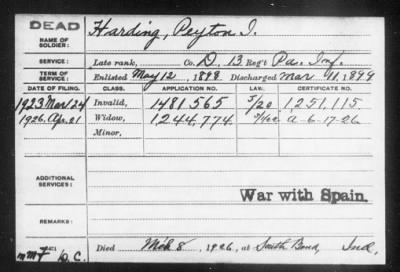 DEAD
NAME OF SOLDIER: Harding, Peyton I.
SERVICE: Late rank, Co. D, 13 Reg't Pa. Inf.
TERM OF SERVICE: Enlisted May 12, 1898 Discharged Mar. 11, 1899
DATE OF FILING. CLASS. APPLICATION NO. LAW. CERTIFICATE NO.
1923 Mar 24 Invalid, 1481,565 5/20 1,251,115
1926, Ap. 21 Widow, 1,244,774 A-6-17-26
Minor,
ADDITIONAL SERVICES:
War with Spain.
REMARKS:
Died Mch 8, 1926, at South Bend, Ind.
D.C.